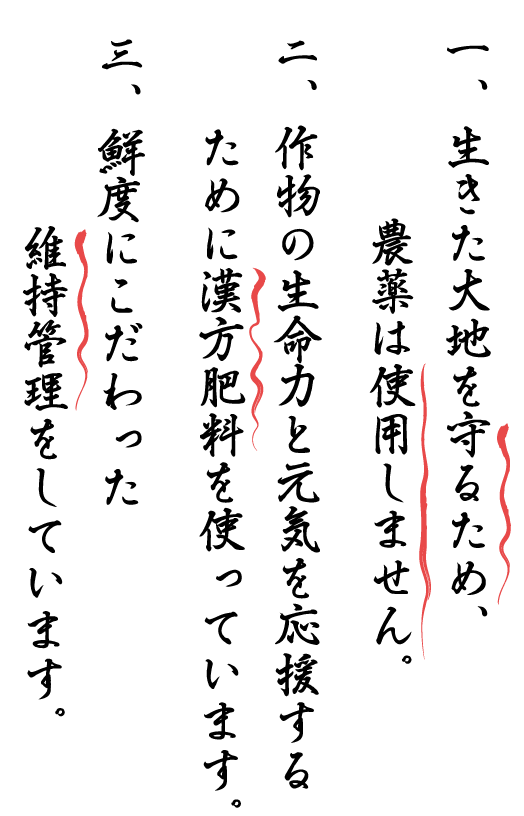 一、生きた大地を守るため、
農薬は使用しません。
二、作物の生命力と元気を応援する
ために漢方肥料を使っています。
三、鮮度にこだわった
維持管理をしています。